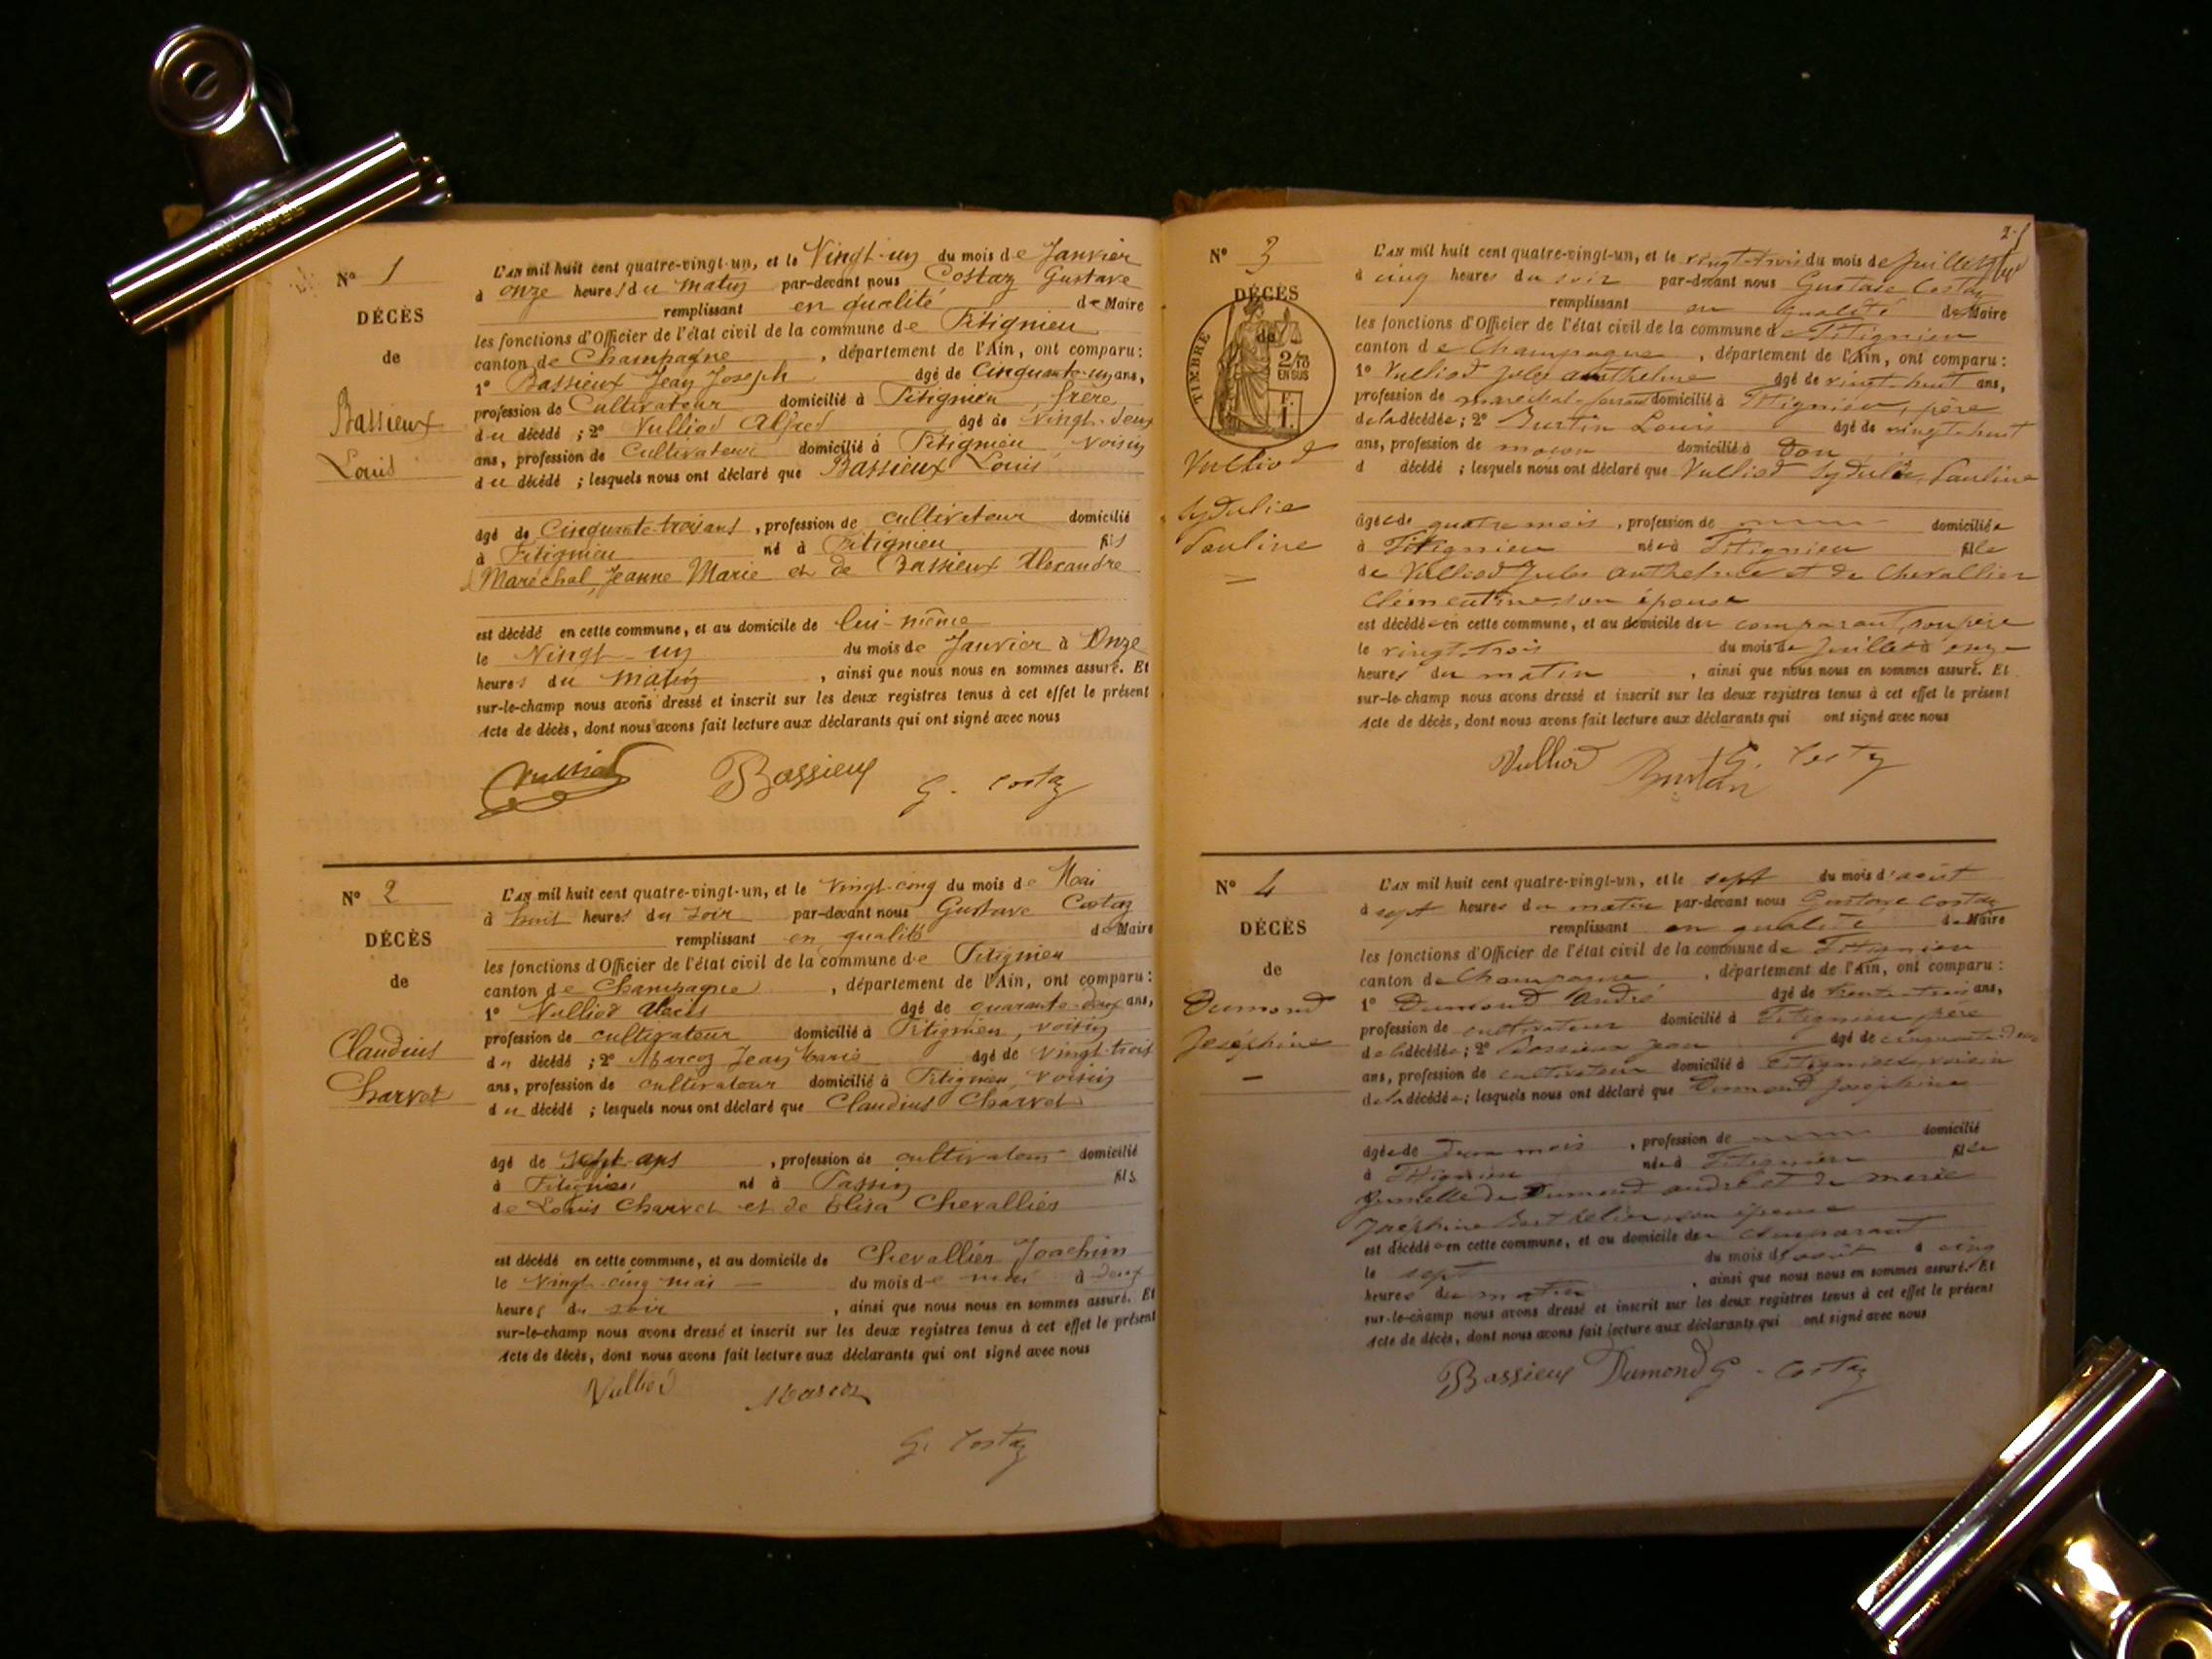 N° 1
DÉCÈS
de
Bassieux
Louis
L'AN mil huit cent quatre-vingt-un, et le Vingt-un du mois de Janvier
à onze heures du matin par-devant nous Costaz Gustave
remplissant en qualité de Maire
les fonctions d'Officier de l'état civil de la commune de Fitignieu
canton de Champagne, département de l'Ain, ont comparu:
1° Bassieux Jean Joseph âgé de Cinquante-un ans,
profession de Cultivateur domicilié à Fitignieu, frère
du décédé; 2° Vulliod Alfred âgé de Vingt-deux
ans, profession de Cultivateur domicilié à Fitignieu, voisin
du décédé; lesquels nous ont déclaré que Bassieux Louis
âgé de Cinquante-trois ans, profession de cultivateur domicilié
à Fitignieu né à Fitignieu fils
d Maréchal, Jeanne Marie et de Bassieux Alexandre
est décédé en cette commune, et au domicile de lui-même
le Vingt-un du mois de Janvier à Onze
heures du matin, ainsi que nous nous en sommes assuré. Et
sur-le-champ nous avons dressé et inscrit sur les deux registres tenus à cet effet le présent
Acte de décès, dont nous avons fait lecture aux déclarants qui ont signé avec nous
Vulliod Bassieux G. Costaz
N° 2
DÉCÈS
de
Claudius
Charvet
L'AN mil huit cent quatre-vingt-un, et le Vingt-cinq du mois de Mai
à huit heures du soir par-devant nous Gustave Costaz
remplissant en qualité de Maire
les fonctions d'Officier de l'état civil de la commune de Fitignieu
canton de Champagne, département de l'Ain, ont comparu:
1° Vulliod Alexis âgé de quarante-deux ans,
profession de cultivateur domicilié à Fitignieu, voisin
du décédé; 2° Marcoz Jean Marie âgé de vingt-trois
ans, profession de cultivateur domicilié à Fitignieu, voisin
du décédé; lesquels nous ont déclaré que Claudius Charvet
âgé de sept ans, profession de cultivateur domicilié
à Fitignieu né à Passin fils
de Louis Charvet et de Elisa Chevallier
est décédé en cette commune, et au domicile de Chevallier Joachim
le Vingt-cinq mai du mois de mai à deux
heures du soir, ainsi que nous nous en sommes assuré. Et
sur-le-champ nous avons dressé et inscrit sur les deux registres tenus à cet effet le présent
Acte de décès, dont nous avons fait lecture aux déclarants qui ont signé avec nous
Vulliod Marcoz
G. Costaz
N° 3
DÉCÈS
de
TIMBRE
2/10
EN SUS
F.
1.
Vulliod
Sydulie
Pauline
L'AN mil huit cent quatre-vingt-un, et le vingt-trois du mois de Juillet
à cinq heures du soir par-devant nous Gustave Costaz
remplissant en qualité de Maire
les fonctions d'Officier de l'état civil de la commune de Fitignieu
canton de Champagne, département de l'Ain, ont comparu:
1° Vulliod Jules Anthelme âgé de vingt-huit ans,
profession de maréchal-ferrant domicilié à Fitignieu, père
de la décédée; 2° Burtin Louis âgé de vingt-huit
ans, profession de maçon domicilié à Don
d décédé; lesquels nous ont déclaré que Vulliod Sydulie Pauline
âgée de quatre mois, profession de domiciliée
à Fitignieu née à Fitignieu fille
de Vulliod Jules Anthelme et de Chevallier
Clémentine, son épouse
est décédée en cette commune, et au domicile du comparant, son père
le vingt-trois du mois de Juillet à onze
heures du matin, ainsi que nous nous en sommes assuré. Et
sur-le-champ nous avons dressé et inscrit sur les deux registres tenus à cet effet le présent
Acte de décès, dont nous avons fait lecture aux déclarants qui ont signé avec nous
Vulliod Burtin G. Costaz
N° 4
DÉCÈS
de
Dumond
Joséphine
L'AN mil huit cent quatre-vingt-un, et le sept du mois d'août
à sept heures du matin par-devant nous Gustave Costaz
remplissant en qualité de Maire
les fonctions d'Officier de l'état civil de la commune de Fitignieu
canton de Champagne, département de l'Ain, ont comparu:
1° Dumond André âgé de trente-trois ans,
profession de cultivateur domicilié à Fitignieu, père
de la décédée; 2° Bassieux Jean âgé de cinquante-deux
ans, profession de cultivateur domicilié à Fitignieu, voisin
de la décédée; lesquels nous ont déclaré que Dumond Joséphine
âgée de deux mois, profession de domicilié
à Fitignieu née à Fitignieu fille
jumelle de Dumond André et de Marie
Joséphine Berthelier, son épouse
est décédée en cette commune, et au domicile du comparant
le sept du mois d'août à cinq
heures du matin, ainsi que nous nous en sommes assuré. Et
sur-le-champ nous avons dressé et inscrit sur les deux registres tenus à cet effet le présent
Acte de décès, dont nous avons fait lecture aux déclarants qui ont signé avec nous
Bassieux Dumond G. Costaz